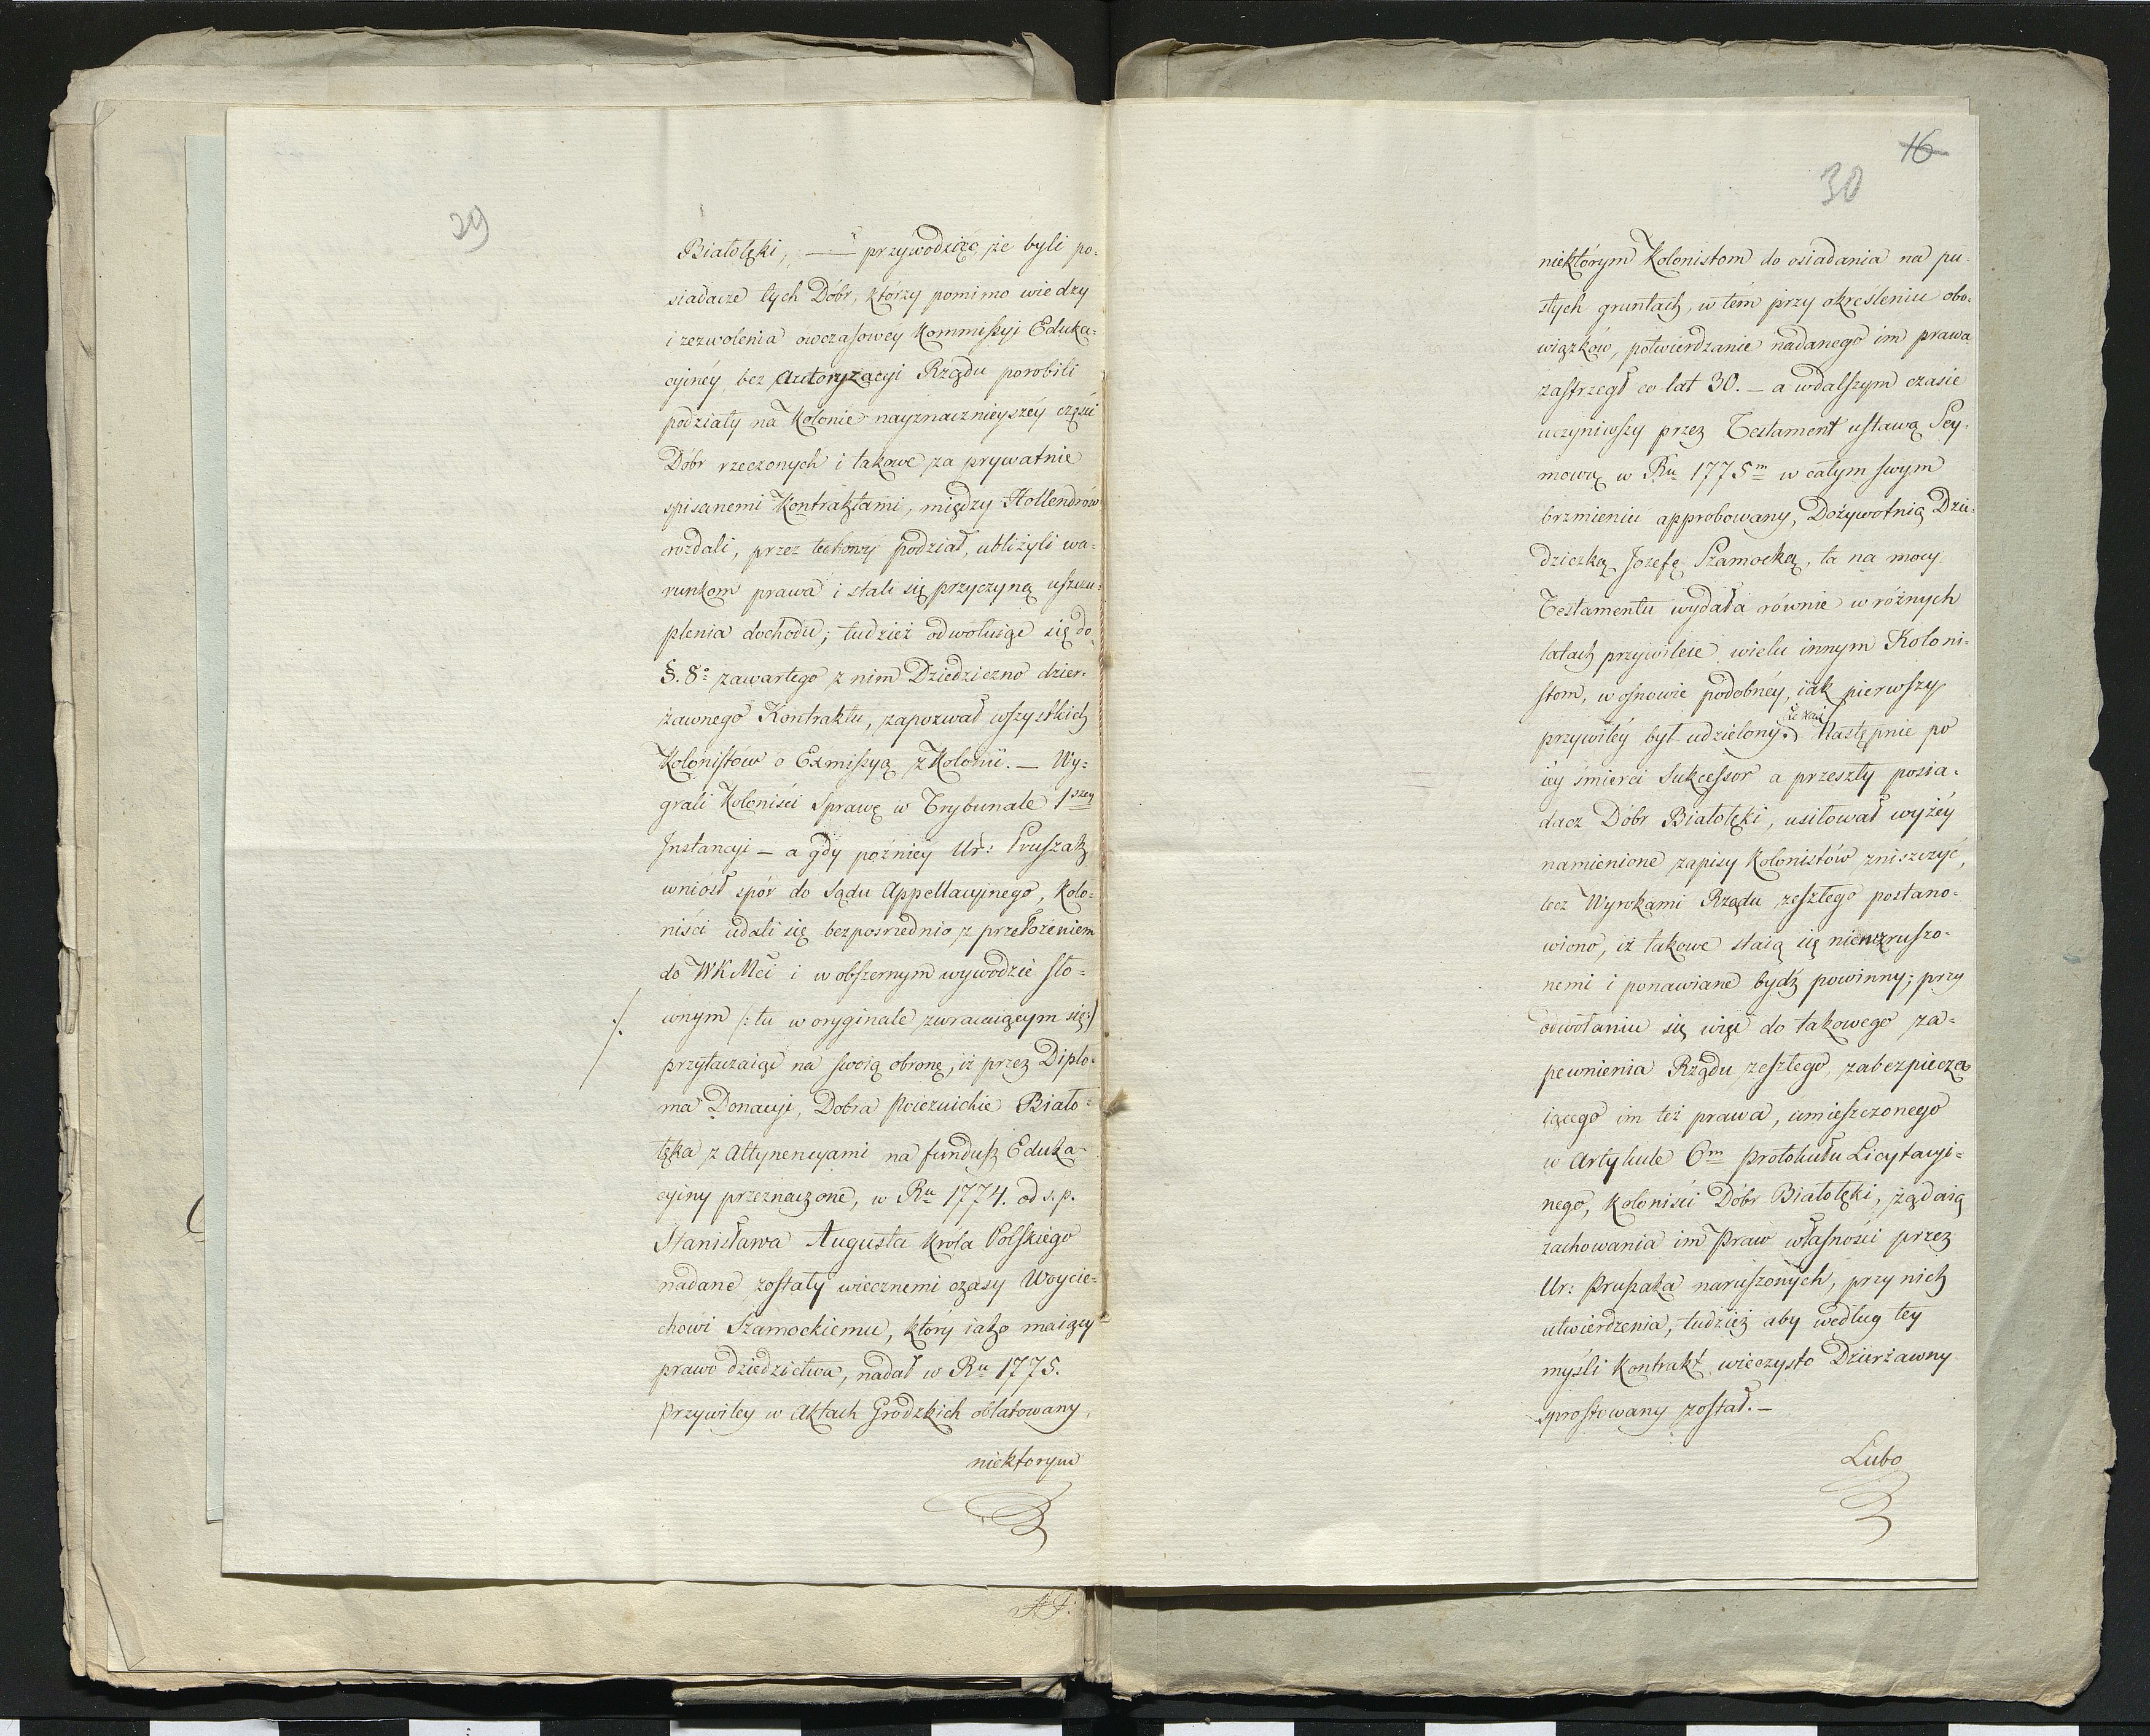 29
Białołęki, — przywodząc, że byli po-
siadacze tych Dóbr, którzy pomimo wiedzy
i zezwolenia ówczasowéy Kommissyi Eduka-
cyinéy, bez Autoryzacyi Rządu porobili
podziały na Kolonie nayznacznieyszéy części
Dóbr rzeczonych i takowe za prywatnie
spisanemi Kontraktami, między Hollendrów
rozdali, przez takowy podział, ubliżyli wa-
runkom prawa i stali się przyczyną uszczu-
plenia dochodu; tudzież odwołuiąc się do
§. 8º zawartego z nim Dziedziczno dzier-
żawnego Kontraktu, zapozwał wszystkich
Kolonistów o Exmissyą z Kolonii. — Wy-
grali Koloniści Sprawę w Trybunale 1szey
Instancyi — a gdy poźniey Ur: Pruszak
wniósł spór do Sądu Appellacyinego, Kolo-
niści udali się bezposrednio z przełożeniem
do WKMci i w obszernym wywodzie sło-
wnym /: tu w oryginale zwracaiącym się :/
przytaczaiąc na swoią obronę, iż przez Diplo-
ma Donacyi, Dobra Poiezuickie Biało-
łęka z Attynencyami na fundusz Eduka-
cyiny przeznaczone, w Ru 1774. od s. p.
Stanisława Augusta Krola Polskiego
nadane zostały wiecznemi czasy Woycie-
chowi Szamockiemu, który iako maiący
prawo dziedzictwa, nadał w Ru 1775.
Przywiley w Aktach Grodzkich oblatowany,
niektorym
16
30
niektórym Kolonistom do osiadania na pu-
stych gruntach, w tém przy określeniu obo-
wiązków, potwierdzanie nadanego im prawa
zastrzegł co lat 30. — a w dalszym czasie
uczyniwszy przez Testament ustawą Sey-
mową w Ru 1775m w całym swym
brzmieniu approbowany, Dożywotnią Dzie-
dziczką Jozefę Szamocką, ta na mocy
Testamentu wydała równie w różnych
latach przywileie wielu innym Koloni-
stom, w osnowie podobnéy, iak pierwszy
przywiléy był udzielony. Następnie po
iéy śmierci Sukcessor a przeszły posia-
dacz Dóbr Białołęki, usiłował wyżéy
namienione zapisy Kolonistów zniszczyć,
lecz Wyrokami Rządu zeszłego postano-
wiono, iż takowe staią się niewzruszo-
nemi i ponawiane bydź powinny; przy
odwołaniu się więc do takowego za-
pewnienia Rządu zeszłego, zabezpiecza-
iącego im też prawa, umieszczonego
w Artykule 6m Protokułu Licytacyi-
nego, Koloniści Dóbr Białołęki, żądaią
zachowania im Praw własności przez
Ur: Pruszaka naruszonych, przy nich
utwierdzenia, tudzież aby według tey
myśli Kontrakt wieczysto Dzierżawny
sprostowany został. —
Lubo